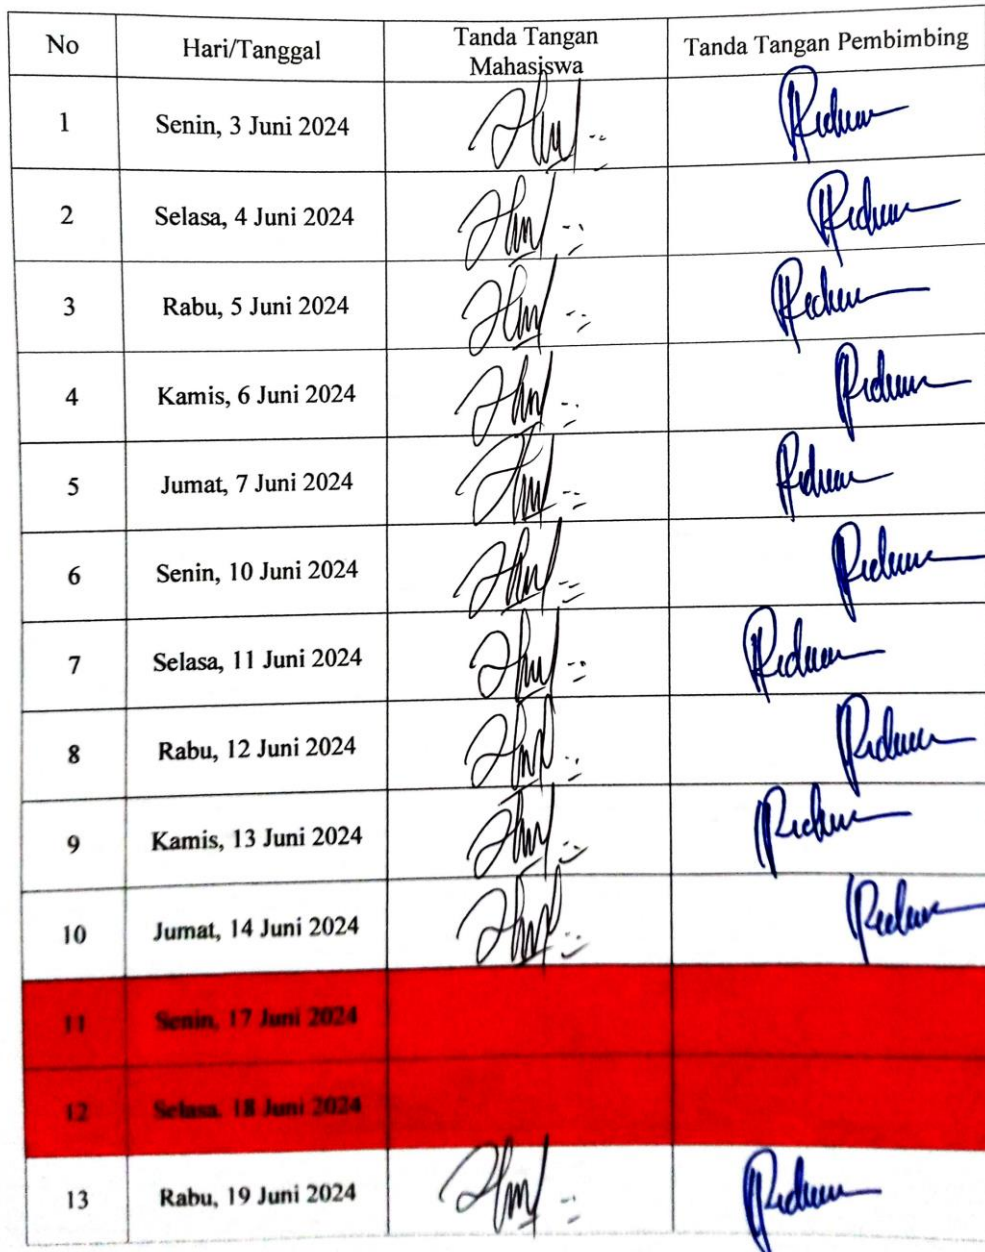 No Hari/Tanggal Tanda Tangan Mahasiswa Tanda Tangan Pembimbing
1 Senin, 3 Juni 2024
2 Selasa, 4 Juni 2024
3 Rabu, 5 Juni 2024
4 Kamis, 6 Juni 2024
5 Jumat, 7 Juni 2024
6 Senin, 10 Juni 2024
7 Selasa, 11 Juni 2024
8 Rabu, 12 Juni 2024
9 Kamis, 13 Juni 2024
10 Jumat, 14 Juni 2024
11 Senin, 17 Juni 2024
12 Selasa. 18 Juni 2024
13 Rabu, 19 Juni 2024